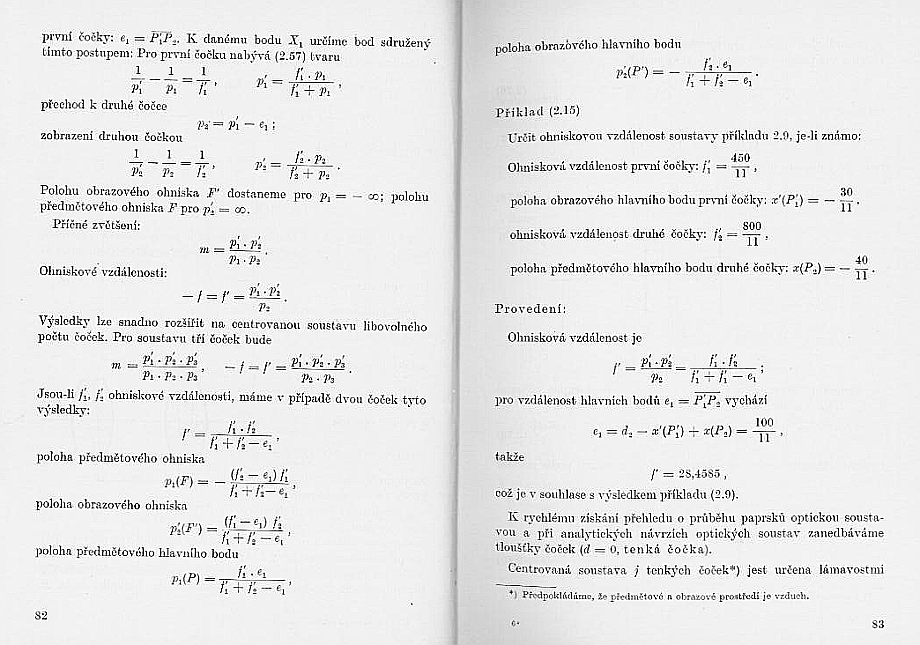 první čočky: e₁ = P′₁P₂. K danému bodu X₁ určíme bod sdružený
tímto postupem: Pro první čočku nabývá (2.57) tvaru
1/p′₁ − 1/p₁ = 1/f′₁ , p′₁ = f′₁ . p₁ / (f′₁ + p₁) ,
přechod k druhé čočce
p₂ = p′₁ − e₁ ;
zobrazení druhou čočkou
1/p′₂ − 1/p₂ = 1/f′₂ , p′₂ = f′₂ . p₂ / (f′₂ + p₂) .
Polohu obrazového ohniska F′ dostaneme pro p₁ = − ∞; polohu
předmětového ohniska F pro p′₂ = ∞.
Příčné zvětšení:
m = p′₁ . p′₂ / (p₁ . p₂) .
Ohniskové vzdálenosti:
− f = f′ = p′₁ . p′₂ / p₂ .
Výsledky lze snadno rozšířit na centrovanou soustavu libovolného
počtu čoček. Pro soustavu tří čoček bude
m = p′₁ . p′₂ . p′₃ / (p₁ . p₂ . p₃) , − f = f′ = p′₁ . p′₂ . p′₃ / (p₂ . p₃) .
Jsou-li f′₁, f′₂ ohniskové vzdálenosti, máme v případě dvou čoček tyto
výsledky:
f′ = f′₁ . f′₂ / (f′₁ + f′₂ − e₁) ,
poloha předmětového ohniska
p₁(F) = − (f′₂ − e₁) f′₁ / (f′₁ + f′₂ − e₁) ,
poloha obrazového ohniska
p′₂(F′) = (f′₁ − e₁) f′₂ / (f′₁ + f′₂ − e₁) ,
poloha předmětového hlavního bodu
p₁(P) = f′₁ . e₁ / (f′₁ + f′₂ − e₁) ,
82
poloha obrazového hlavního bodu
p′₂(P′) = − f′₂ . e₁ / (f′₁ + f′₂ − e₁) .
Příklad (2.15)
Určit ohniskovou vzdálenost soustavy příkladu 2.9, je-li známo:
Ohnisková vzdálenost první čočky: f′₁ = 450/11 ,
poloha obrazového hlavního bodu první čočky: x′(P′₁) = − 30/11 .
ohnisková vzdálenost druhé čočky: f′₂ = 800/11 ,
poloha předmětového hlavního bodu druhé čočky: x(P₂) = − 40/11 .
Provedení:
Ohnisková vzdálenost je
f′ = p′₁ . p′₂ / p₂ = f′₁ . f′₂ / (f′₁ + f′₂ − e₁) ;
pro vzdálenost hlavních bodů e₁ = P′₁P₂ vychází
e₁ = d₂ − x′(P′₁) + x(P₂) = 100/11 ,
takže
f′ = 28,4585 ,
což je v souhlase s výsledkem příkladu (2.9).
K rychlému získání přehledu o průběhu paprsků optickou sousta-
vou a při analytických návrzích optických soustav zanedbáváme
tloušťky čoček (d = 0, tenká čočka).
Centrovaná soustava j tenkých čoček*) jest určena lámavostmi
*) Předpokládáme, že předmětové a obrazové prostředí je vzduch.
6*
83